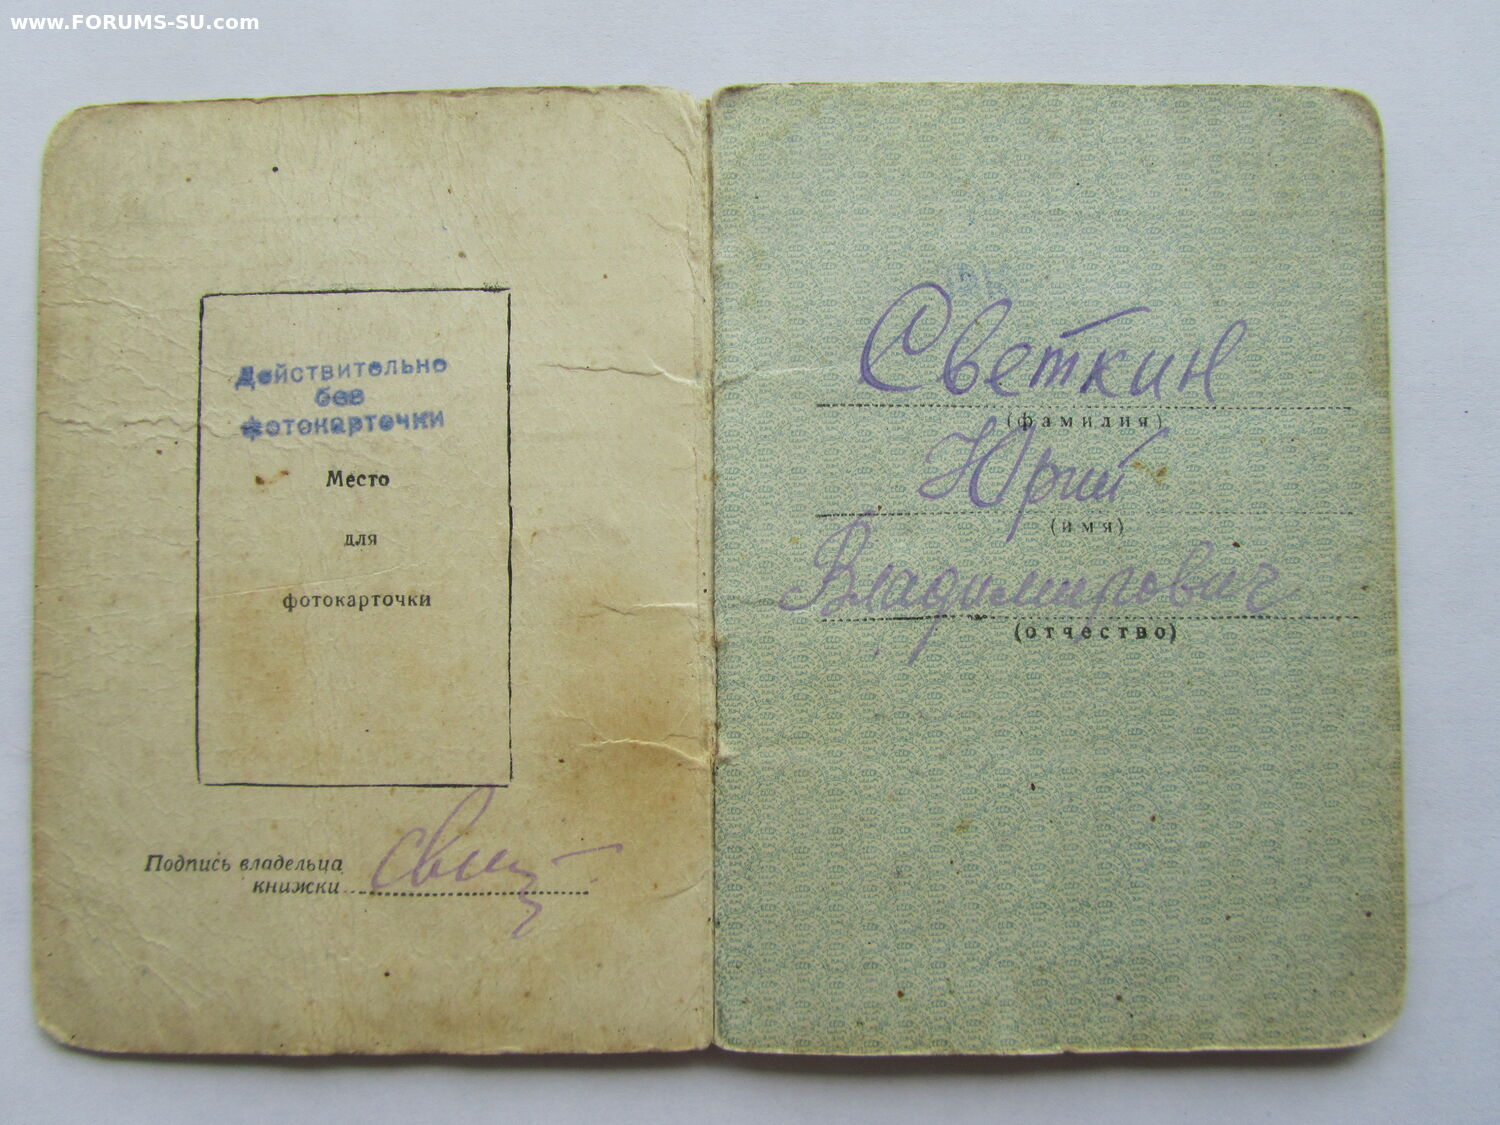 www.FORUMS-SU.com
Действительно
без
фотокарточки
Место
для
фотокарточки
Подпись владельца
книжки
Светкин
(фамилия)
Юрий
(имя)
Владимирович
(отчество)